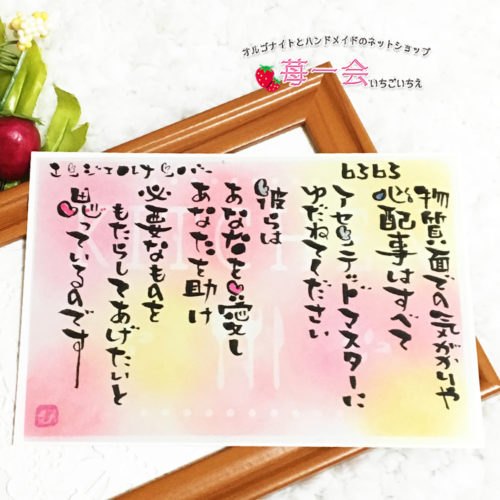 オルゴナイトとハンドメイドのネットショップ
苺一会
いちごいちえ
エンジェルナンバー
6565
物質面での気がかりや
心配事はすべて
アセンデッドマスターに
ゆだねてください
彼らは
あなたを愛し
あなたを助け
必要なものを
もたらしてあげたいと
思っているのです
KITCHEN